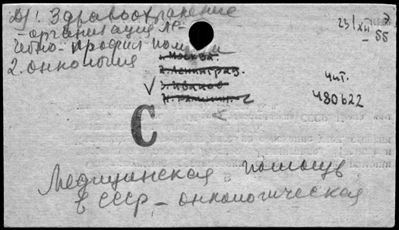 1. Здравоохранение
- организация ле-
чебно-профил. помощи
2. онкология
1. Москва.
2. Ленинград.
√ 3. Иванов
23/XII 55
чит.
480622
С
Медицинская помощь
в СССР, - онкологическая